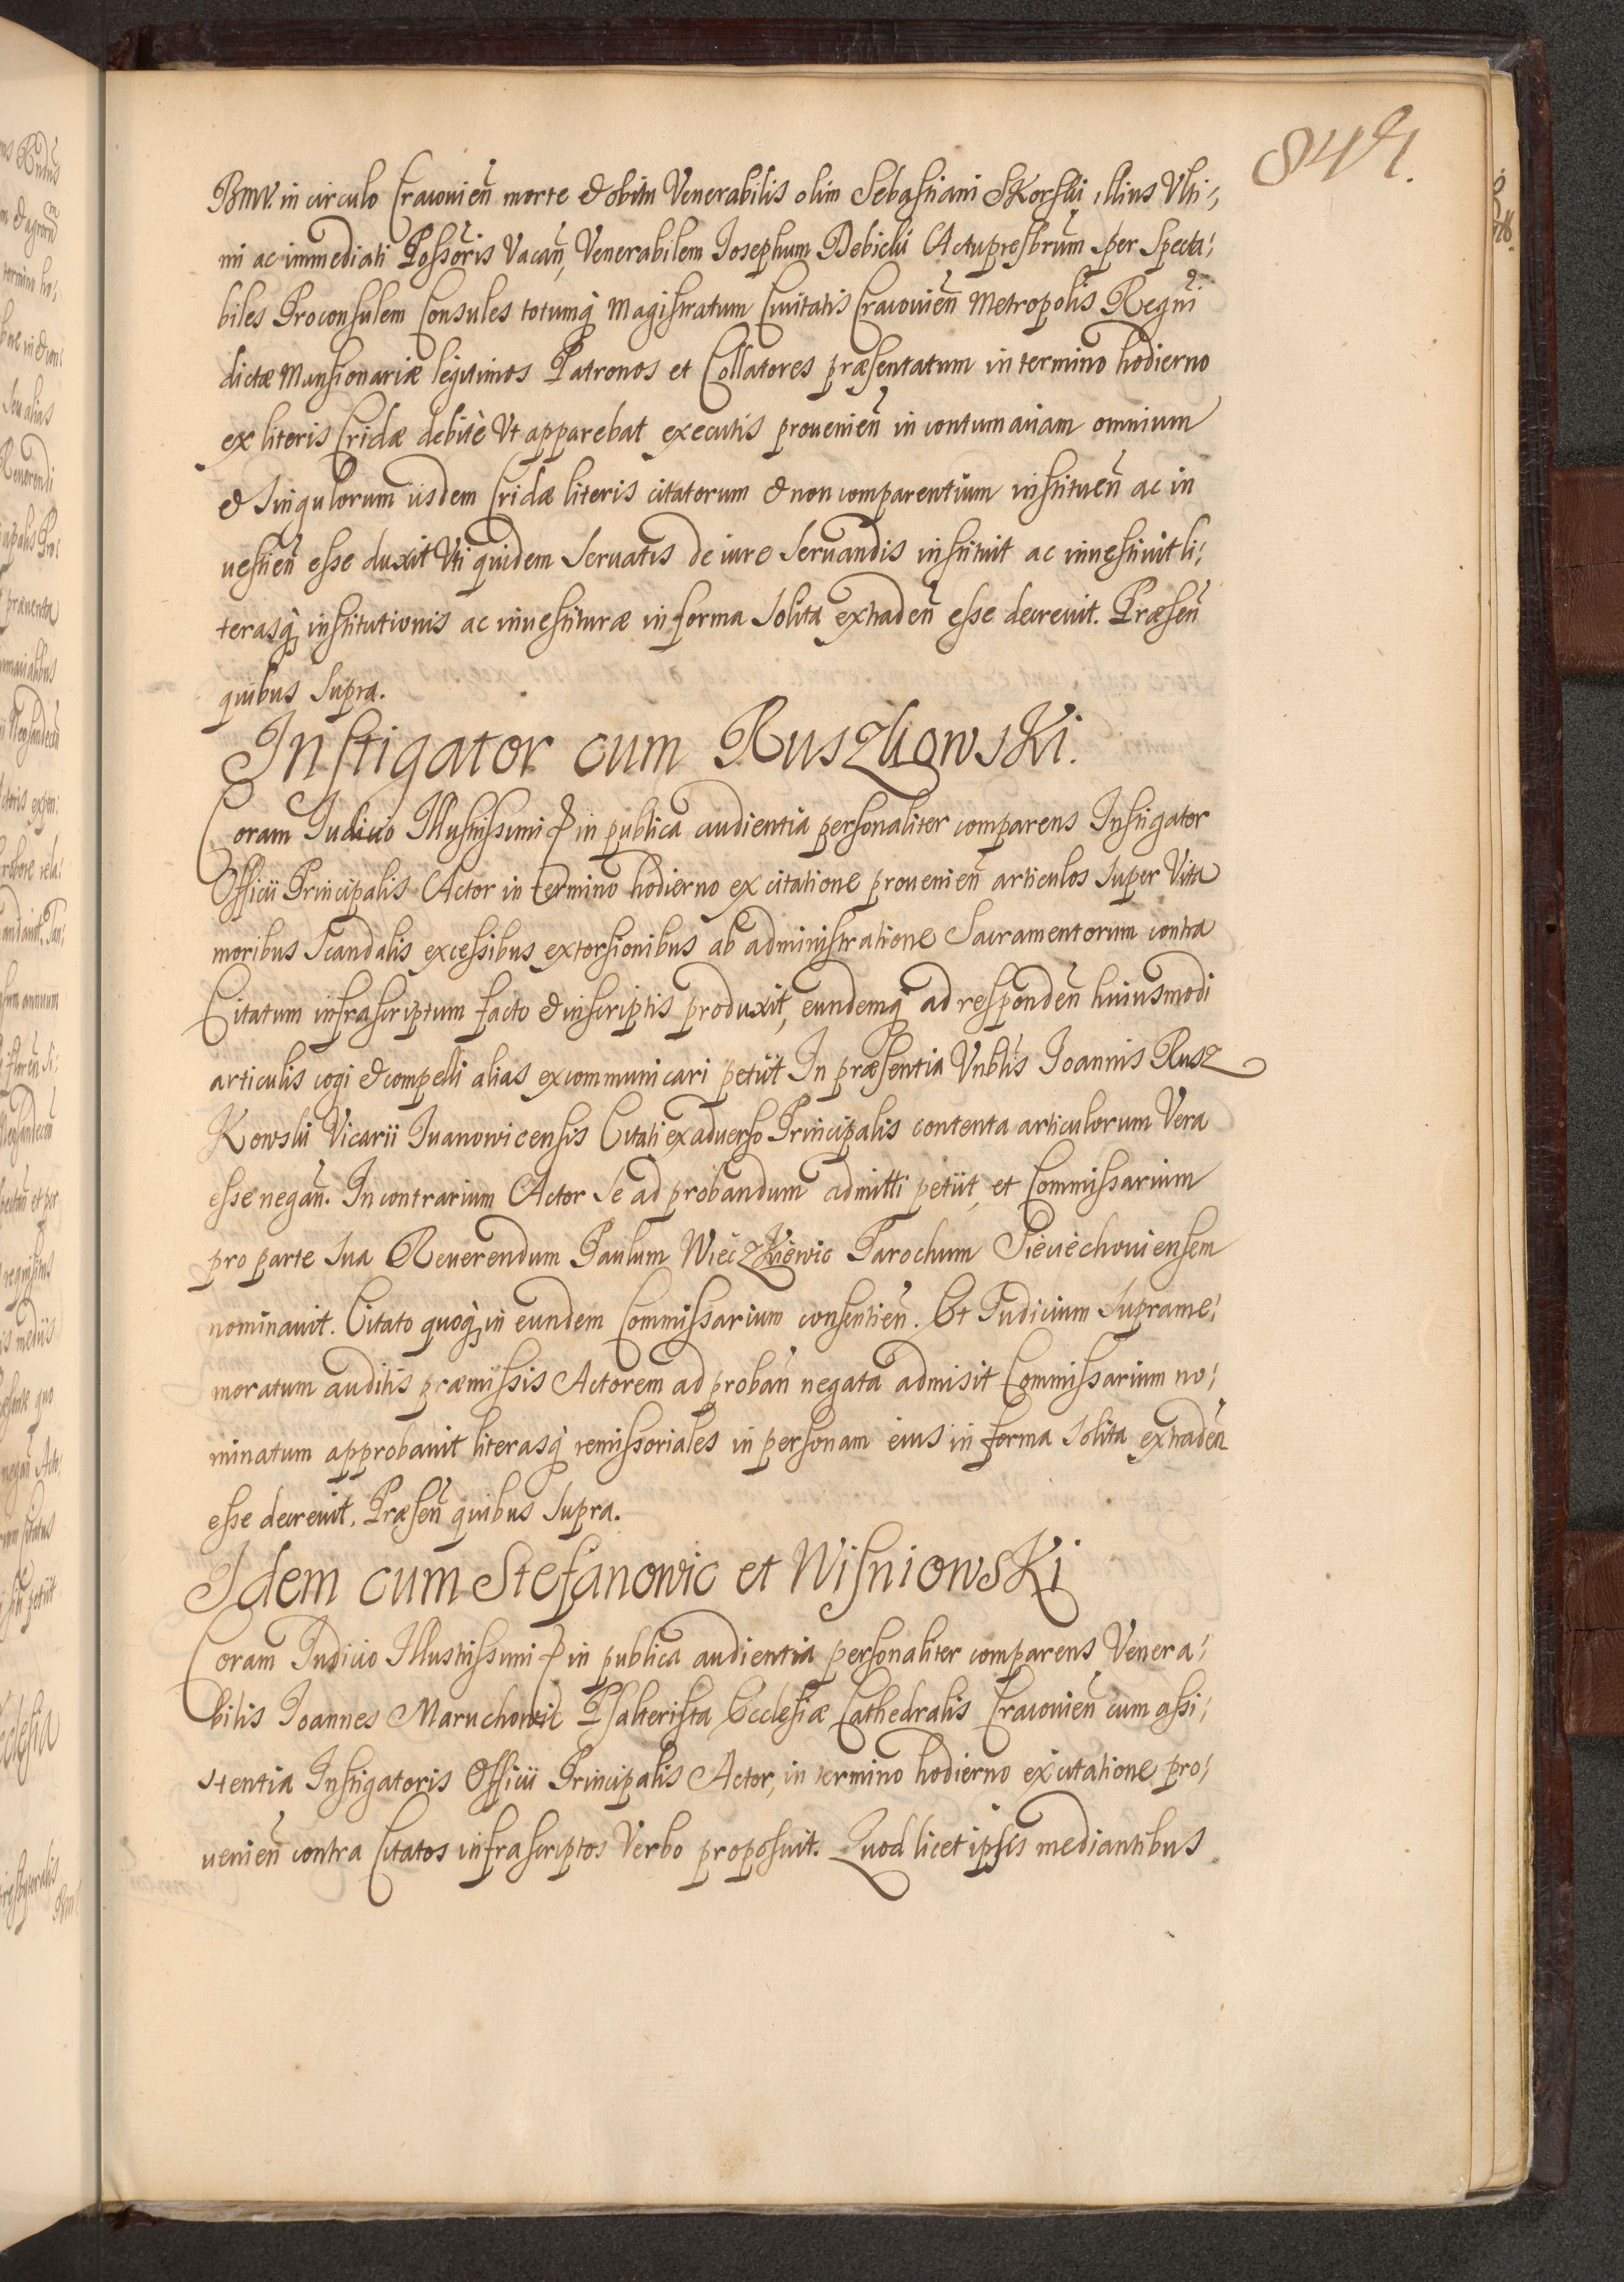 844.
BMV. in circulo Cracovien̄ morte & obitu Venerabilis olim Sebastiani SKorski illius Ulti:
mi ac immediati Possōris Vacan̄, Venerabilem Josephum Debicki Actupresbrūm per Specta:
biles Proconsulem Consules totumq; Magistratum Civitatis Cracovien̄ Metropolis Regni
dictæ Mansionariæ legitimos Patronos et Collatores præsentatum in termino hodierno
ex literis Cridæ debitè Ut apparebat executis provenien̄ in contumaciam omnium
& Singulorum iisdem Cridæ literis citatorum & non comparentium instituen̄ ac in
vestien̄ esse duxit Uti quidem Servatis de iure Servandis instituit ac investivit li:
terasq; institutionis ac investituræ in forma Solita extraden̄ esse decrevit. Præsen̄
quibus Supra.
Instigator cum RuszKowsKi.
Coram Judicio Illustrissimi & in publica audientia personaliter comparens Instigator
Officii Principalis Actor in termino hodierno ex citatione provenien̄ articulos Super Vita
moribus Scandalis excessibus extorsionibus ab administratione Sacramentorum contra
Citatum infrascriptum facto & in scriptis produxit, eundemq; ad responden̄ huiusmodi
articulis cogi & compelli alias excommunicari petiit In præsentia Vnblis Joannis Rusz
Kowski Vicarii Ivanowicensis Citati ex adverso Principalis contenta articulorum Vera
esse negan̄. In contrarium Actor Se ad probandum admitti petiit, et Commissarium
pro parte Sua Reverendum Paulum WiećzKiewic Parochum Sieciechoviensem
nominavit. Citato quoq; in eundem Commissarium consentien̄. Et Judicium Suprame:
moratum auditis præmissis Actorem ad proban̄ negata admisit Commissarium no:
minatum approbavit literasq; remissoriales in personam eius in forma Solita extraden̄
esse decrevit. Præsen̄ quibus Supra.
Idem cum Stefanowic et WisniowsKi
Coram Judicio Illustrissimi & in publica audientia personaliter comparens Venera:
bilis Joannes Maruchowic Psalterista Ecclesiæ Cathedralis Cracovien̄ cum assi:
stentia Instigatoris Officii Principalis Actor, in termino hodierno ex citatione pro:
venien̄ contra Citatos infrascriptos Verbo proposuit. Quod licet ipsis mediantibus